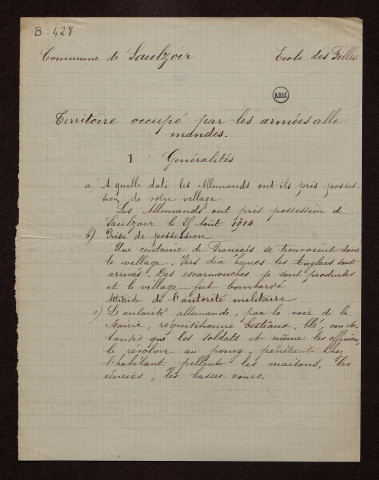 B-428
Commune de Saulzoir Ecole des Filles
BDIC
Territoire occupé par les armées alle
mandes.
1 Généralités
a A quelle date les Allemands ont ils pris posses
sion de votre village
Les Allemands ont pris possession de
Saulzoir le 25 Août 1914
b) Prise de possession
Une centaine de Français se trouvaient dans
le village. Vers dix heures les Anglais sont
arrivés. Des escarmouches se sont produites
et le village fut bombardé
Attitude de l'autorité militaire
c) L'autorité allemande, par la voix de la
Mairie, réquisitionne bestiaux, blé, vin etc
tandis que les soldats et même les officiers,
le révolver au poing, pénètrent chez
l'habitant pillent les maisons, les
écuries, les basses cours.